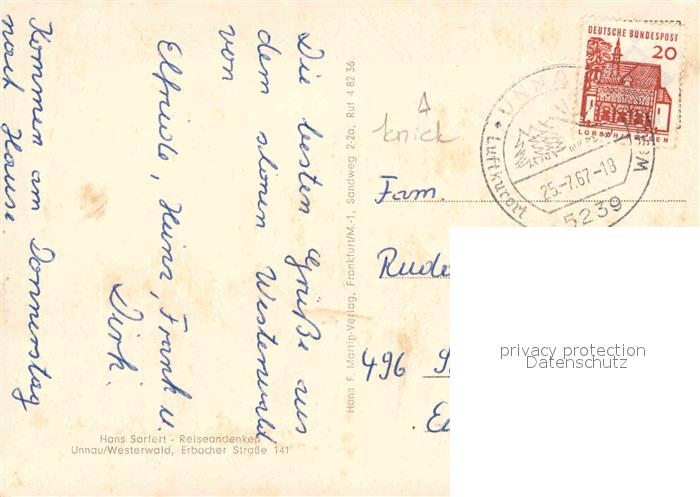 Die besten Grüße aus
dem schönen Westerwald
von
Elfriede, Heinz, Frank u.
Dirk.
Kommen am Donnerstag
nach Hause.
Hans Sarfert - Reiseandenken
Unnau/Westerwald, Erbacher Straße 141
Hans F. Martin-Verlag, Frankfurt/M.-1, Sandweg 2-2a, Ruf 4 82 36
knick
DEUTSCHE BUNDESPOST
20
LORSCH/HESSEN
UNNAU
Luftkurort
25.-7.67-18
5239
Fam.
496
privacy protection
Datenschutz